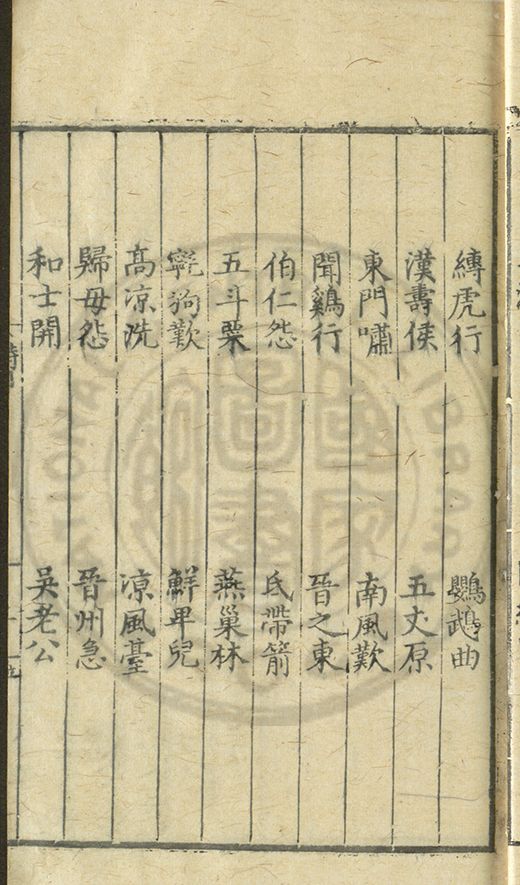 縛虎行 鸚鵡曲
漢壽侯 五丈原
東門嘯 南風歎
聞鷄行 晉之東
伯仁怨 氏帶箭
五斗粟 燕巢林
氊狗歎 鮮卑兒
髙凉洗 凉風臺
歸母怨 晉州急
和士開 吳老公